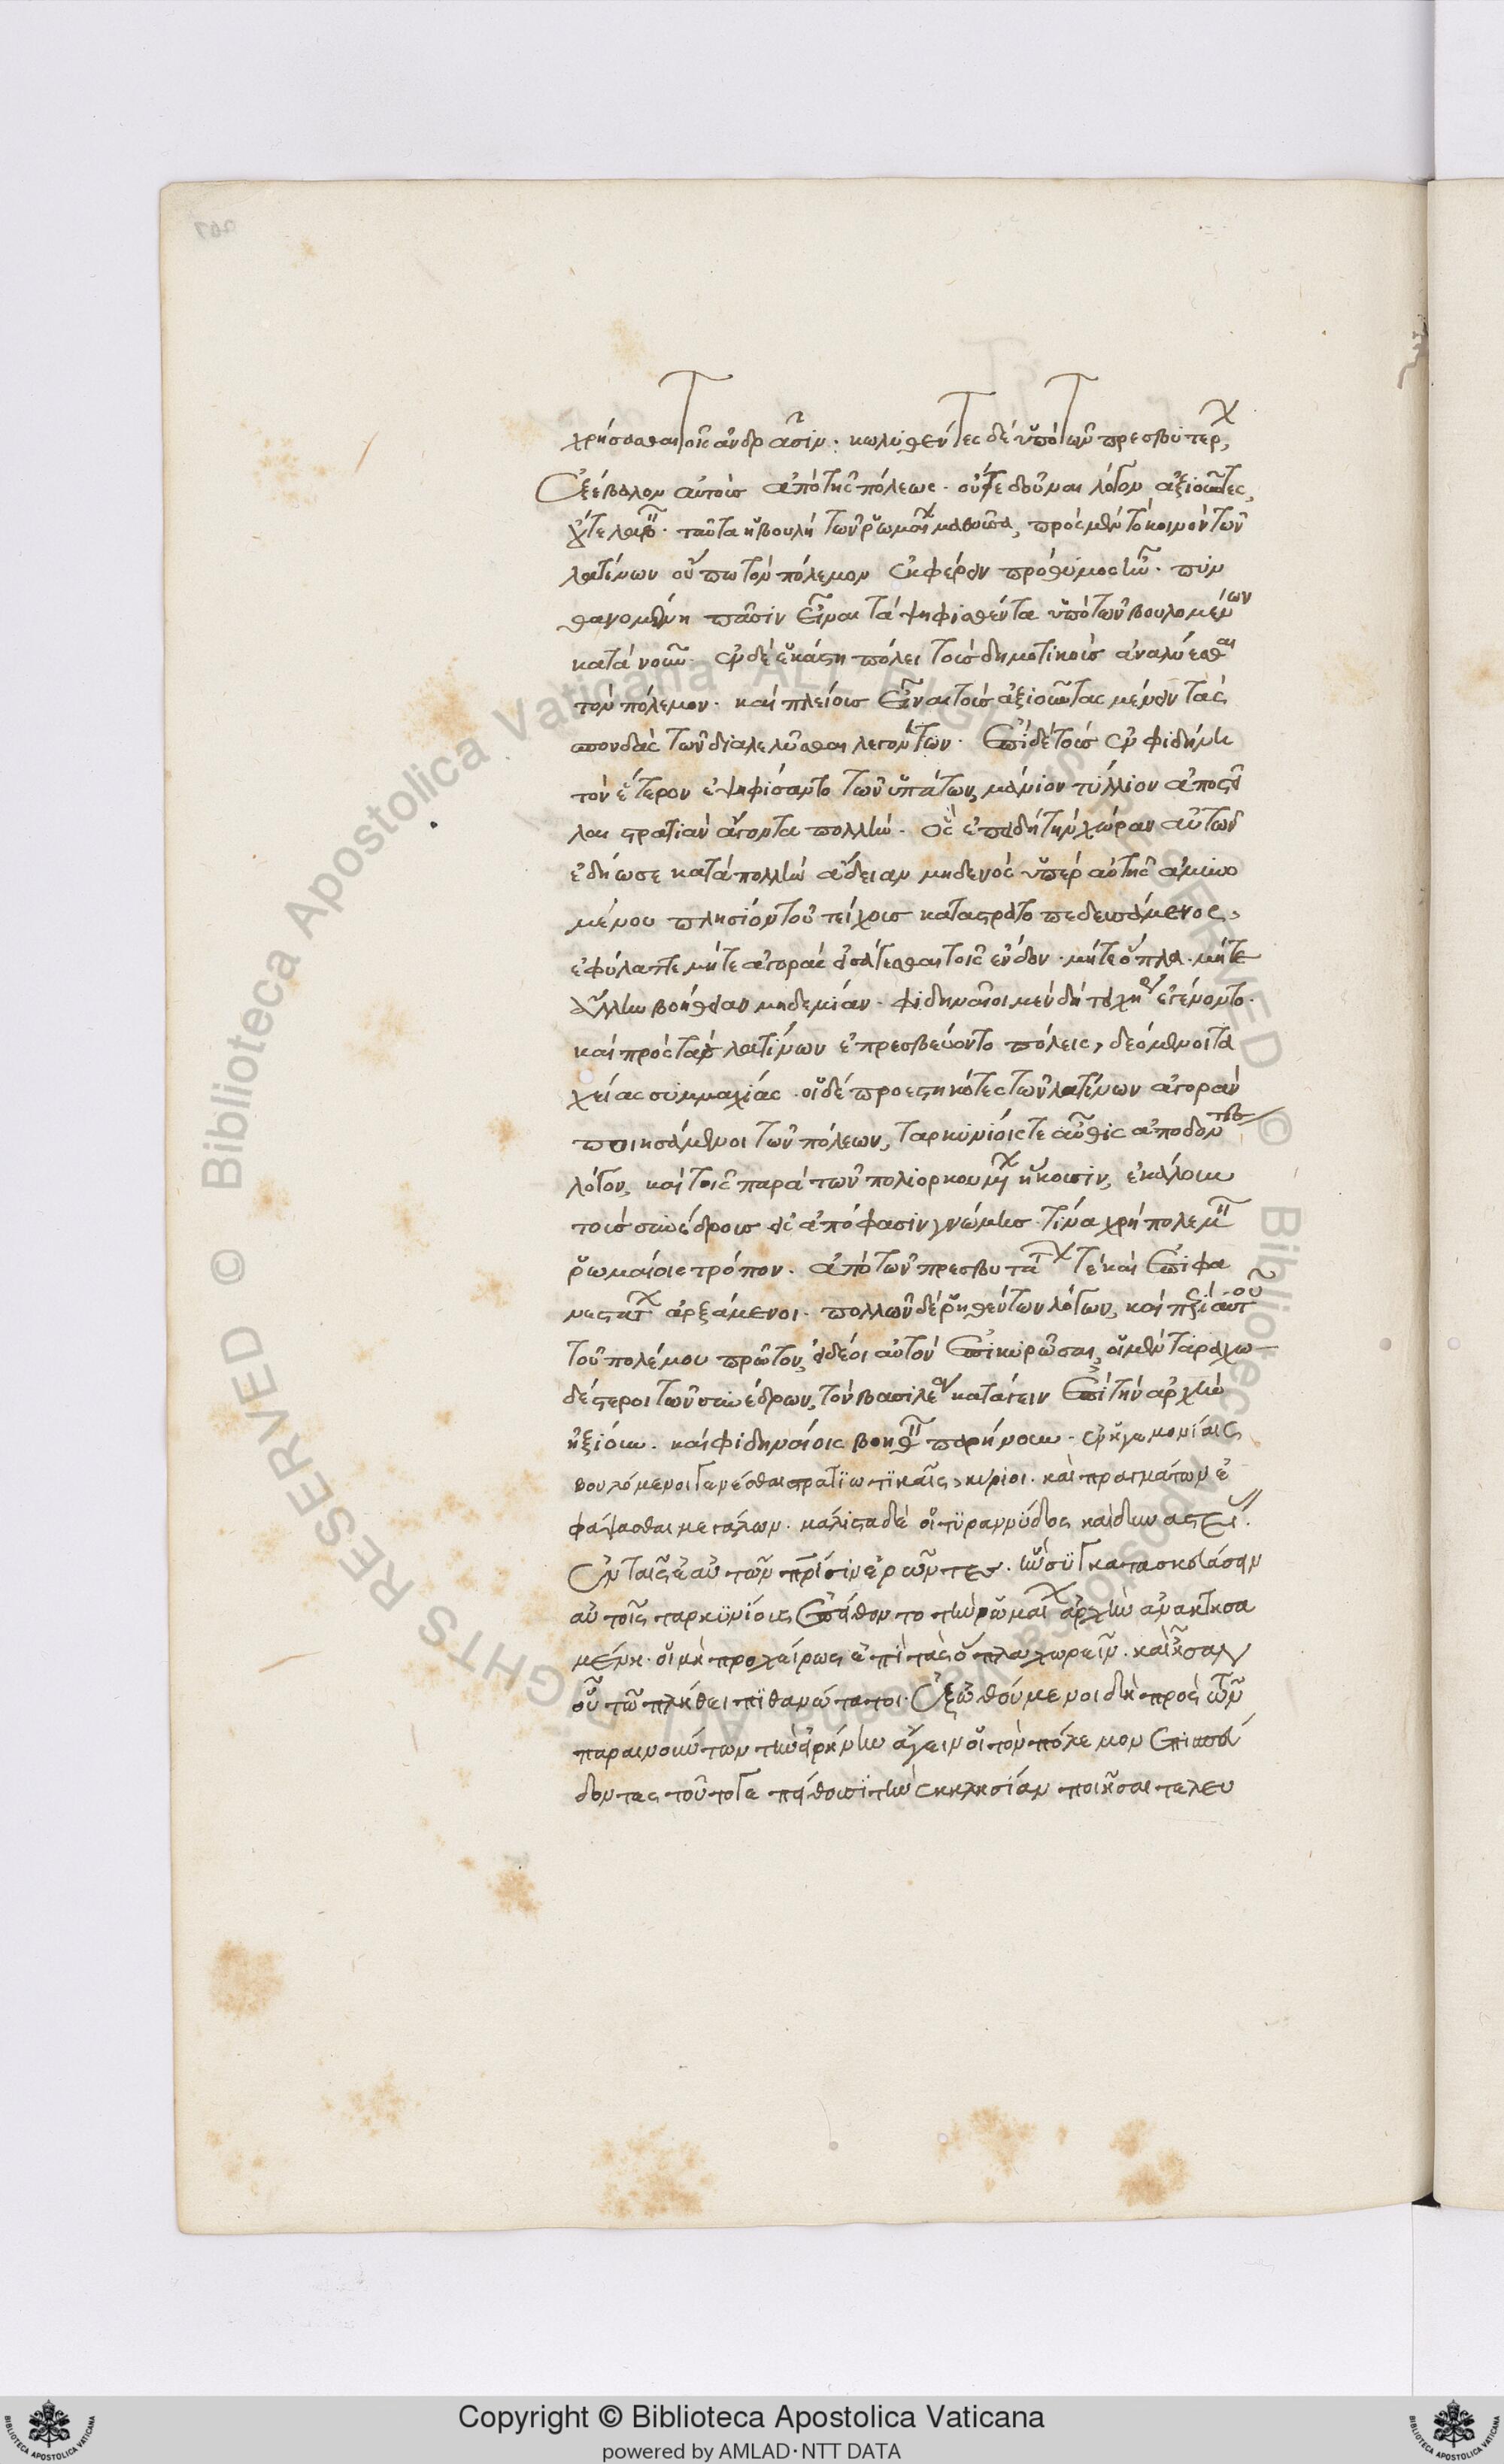 χρήσασθαι τοῖς ἀνδράσιν· κωλυθέντες δὲ ὑπὸ τῶν πρεσβυτέρων,
ἐξέβαλον αὐτοὺς ἀπὸ τῆς πόλεως· οὔτε δοῦναι λόγον ἀξιοῦντες,
οὔτε λαβεῖν· ταῦτα ἡ βουλὴ τῶν ῥωμαίων μαθοῦσα, πρὸς μὲν τὸ κοινὸν τῶν
λατίνων οὔπω τὸν πόλεμον ἐκφέρειν πρόθυμος ἦν· πυν
θανομένη πᾶσιν εἶναι τὰ ψηφισθέντα ὑπὸ τῶν βουλομένων
κατὰ νοῦν· ἐν δὲ ἑκάστη πόλει τοὺς δημοτικοὺς ἀναλύεσθαι
τὸν πόλεμον· καὶ πλείους εἶναι τοὺς ἀξιοῦντας μένειν τὰς
σπονδὰς τῶν διαλελῦσθαι λεγόντων· ἐπὶ δὲ τοὺς ἐν φιδήνη
τὸν ἕτερον ἐψηφίσαντο τῶν ὑπάτων, μάνιον τύλλιον ἀποστεῖ
λαι στρατιὰν ἄγοντα πολλήν· ὃς ἐπειδὴ τὴν χώραν αὐτῶν
ἐδήωσε κατὰ πολλὴν ἄδειαν μηδενὸς ὑπὲρ αὐτῆς ἀμυνο
μένου πλησίον τοῦ τείχους καταστρατοπεδευσάμενος,
ἐφύλαττε μήτε ἀγορὰς εἰσάγεσθαι τοῖς ἔνδον· μήτε ὅπλα· μήτε
ἄλλην βοήθειαν μηδεμίαν· φιδηναῖοι μὲν δὴ τειχήρεις ἐγένοντο·
καὶ πρὸς τὰς λατίνων ἐπρεσβεύοντο πόλεις, δεόμενοι τα
χείας συμμαχίας· οἱ δὲ προεστηκότες τῶν λατίνων ἀγορὰν
ποιησάμενοι τῶν πόλεων, ταρκυνίοις τε αὖθις ἀποδόντες
λόγον, καὶ τοῖς παρὰ τῶν πολιορκουμένων ἥκουσιν, ἐκάλουν
τοὺς συνέδρους εἰς ἀπόφασιν γνώμης· τίνα χρὴ πολεμεῖν
ῥωμαίοις τρόπον· ἀπὸ τῶν πρεσβυτάτων τὲ καὶ ἐπιφα
νεστάτων ἀρξάμενοι· πολλῶν δὲ ῥηθέντων λόγων, καὶ περὶ αὐτοῦ
τοῦ πολέμου πρῶτον, εἰ δέοι αὐτὸν ἐπικυρῶσαι, οἱ μὲν ταραχω
δέστεροι τῶν συνέδρων, τὸν βασιλέα κατάγειν ἐπὶ τὴν ἀρχὴν
ἠξίουν· καὶ φιδηναίοις βοηθεῖν παρήνουν· ἐν ἡγεμονίαις
βουλόμενοι γενέσθαι στρατιωτικαῖς, κύριοι· καὶ πραγμάτων ἐ
φάψασθαι μεγάλων· μάλιστα δὲ οἱ τυραννίδος καὶ δυναστείας
ἐν ταῖς ἑαυτῶν πατρίσιν ἐρῶντες· ἣν συγκατασκευάσειν
αὐτοῖς ταρκυνίους ἐπείθοντο τὴν ῥωμαίων ἀρχὴν ἀνακτησα
μένη· οἱ μὴ προχείρως ἐπὶ τὰς ὅπλα χωρεῖν· καὶ ἦσαν
οὗ τῶ πλήθει πιθανώτατοι· ἐξωθούμενοι δὴ πρὸς τῶν
παραινούντων τὴν εἰρήνην ἄγειν οἱ τὸν πόλεμον ἐπισπεύ
δοντας τοῦτό γε πείθουσι τὴν ἐκκλησίαν ποιῆσαι τελευ